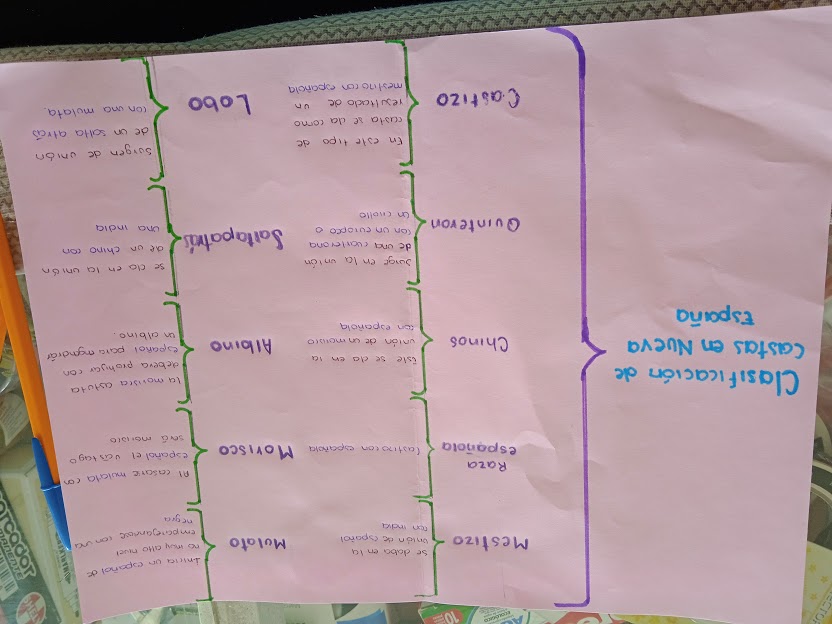 Clasificación de
Castas en Nueva
España
Mestizo
Se daba en la
unión de español
con india
Raza
española
Castizo con española
Chinos
Este se da en la
unión de un morisco
con española
Quinteron
Surge en la unión
de una cuarterona
con un europeo o
un criollo
Castizo
En este tipo de
casta se da como
resultado de un
mestizo con española
Mulato
un español de
no muy alto nivel
emparejandose con una
negra
Morisco
Al casarse mulata con
español el vástago
será morisco
Albino
La morisca astuta
debera prohijar con
español para
un albino.
Saltapatrás
se da en la unión
de un chino con
una india
Lobo
Surgen de unión
de un salta atrás
con una mulata.
ECOLÓGICO
10